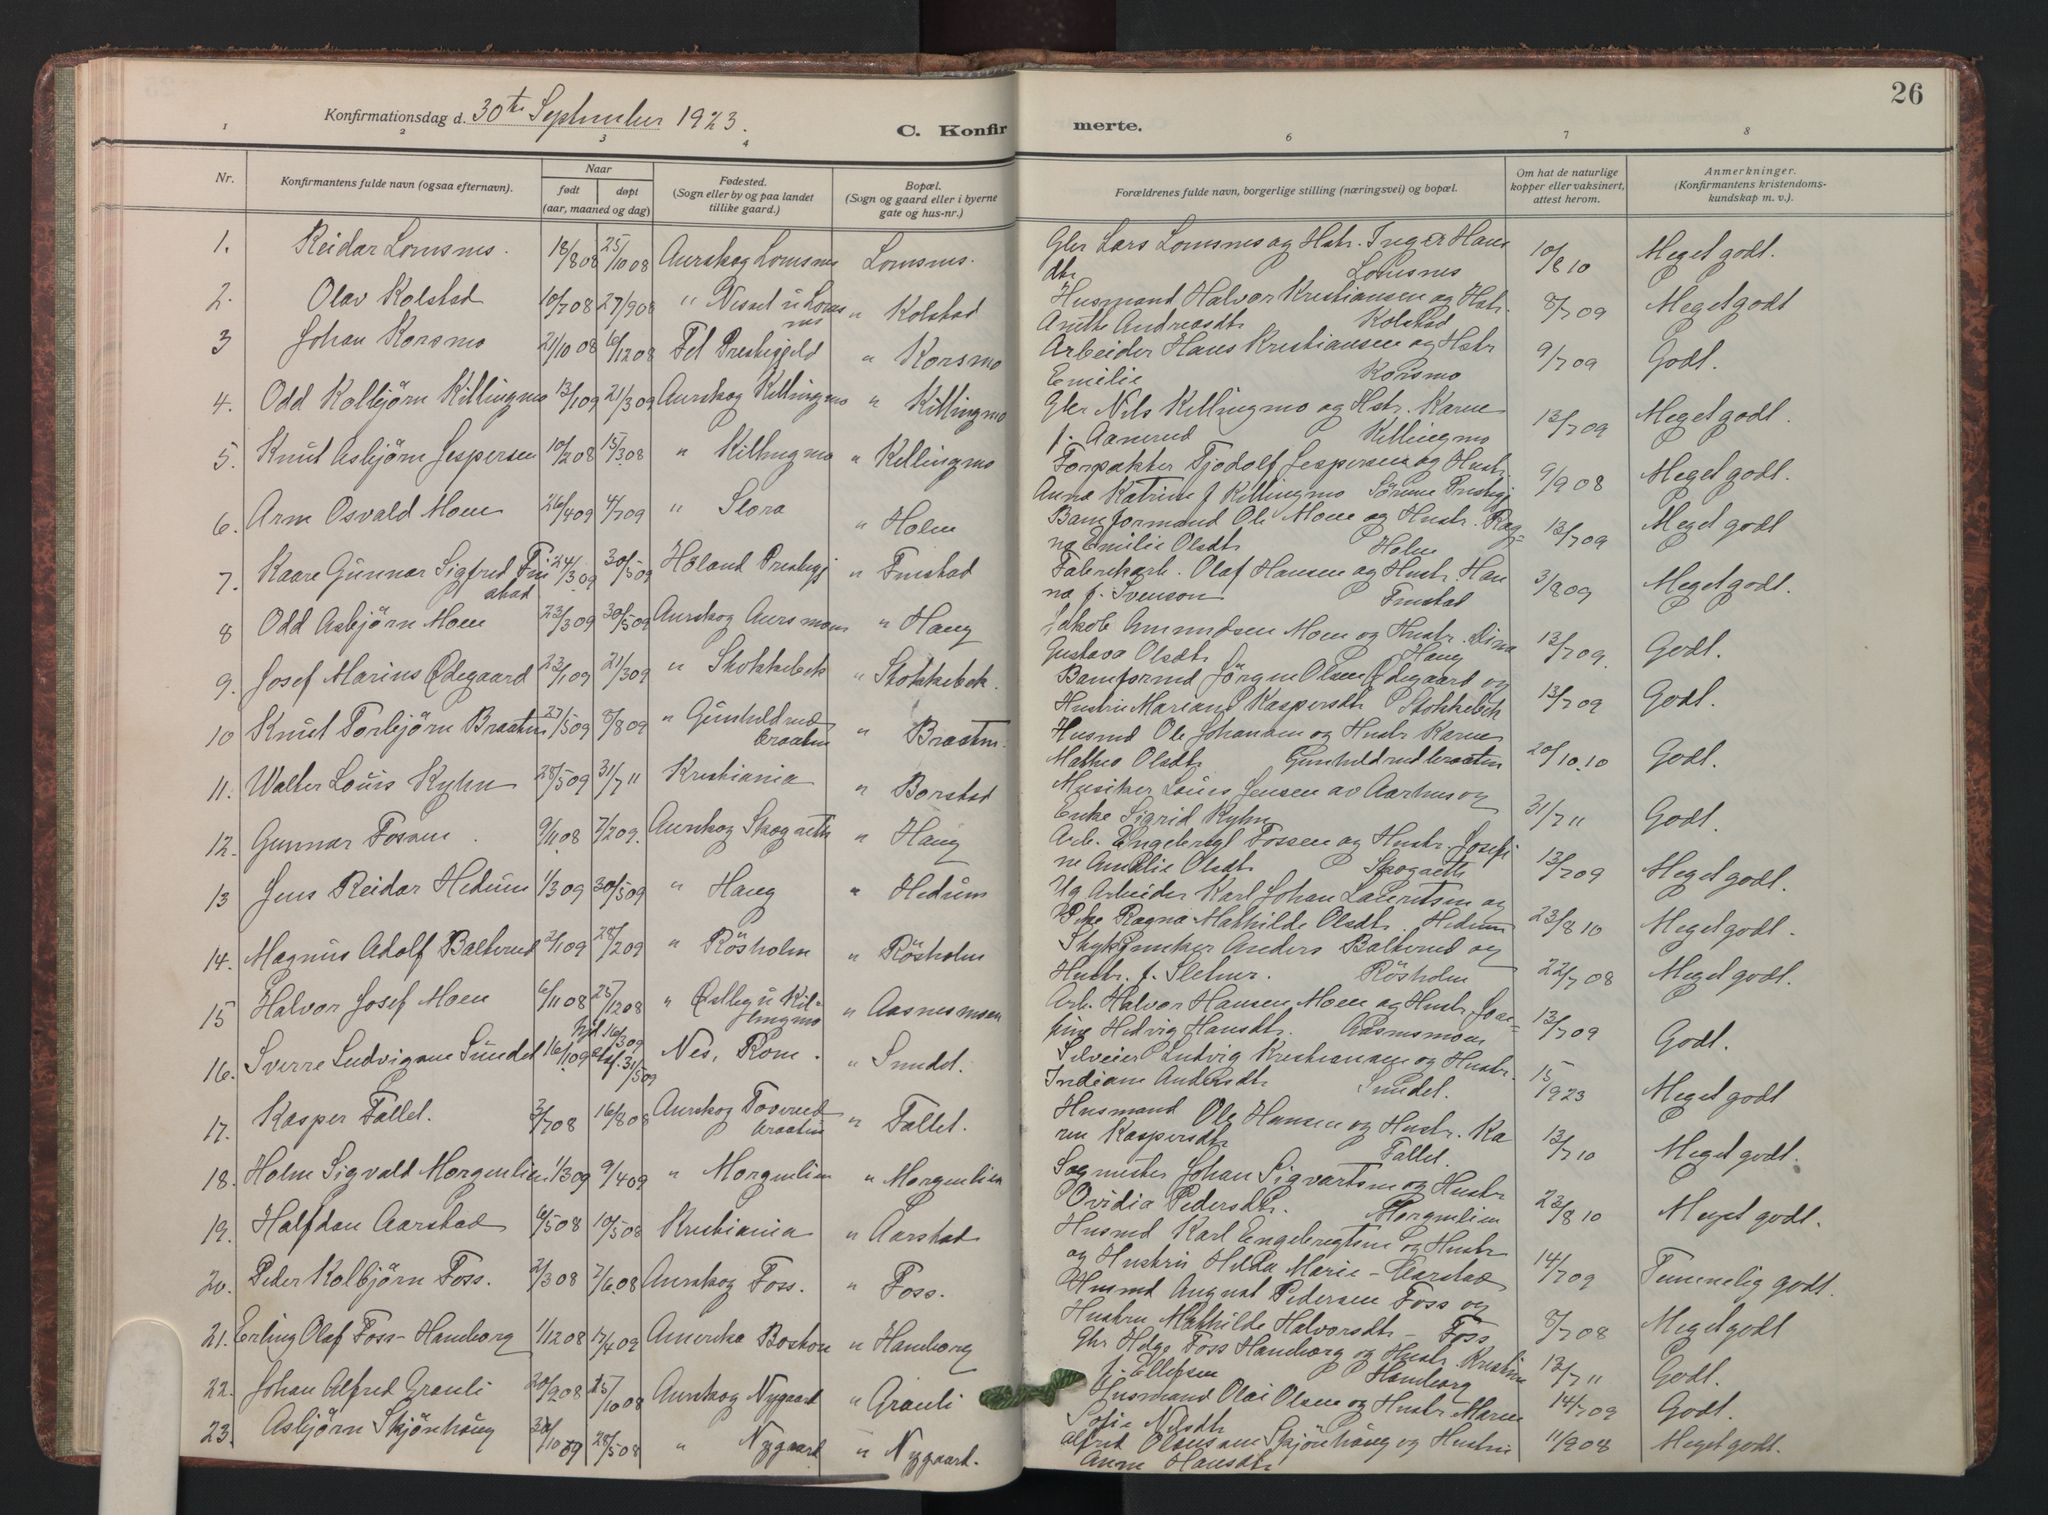 26
Konfirmationsdag d. 30te September 1923.
C. Konfirmerte.
1 2 3 4 6 7 8
Nr.
Konfirmantens fulde navn (ogsaa efternavn).
Naar
født døpt
(aar, maaned og dag)
Fødested.
(Sogn eller by og paa landet
tillike gaard.)
Bopæl.
(Sogn og gaard eller i byerne
gate og hus-nr.)
Forældrenes fulde navn, borgerlige stilling (næringsvei) og bopæl.
Om hat de naturlige
kopper eller vaksinert,
attest herom.
Anmerkninger.
(Konfirmantens kristendoms-
kundskap m. v.).
1. Reidar Lomsnes. 18/8 08 25/10 08 Aurskog Lomsnes Lomsnes. Gbr Lars Lomsnes og Hstr. Inger Hans 10/8 10 Meget godt.
dtr Lomsnes
2. Olav Kolstad 10/7 08 27/9 08 " Kolstad Husmand Halvor Kristiansen og Hstr. 8/7 09 Meget godt
Anette Andreasdtr Kolstad
3 Johan Korsmo 21/10 08 6/12 08 Fet Prestegjeld " Korsmo Arbeider Hans Kristiansen og Hstr 9/7 09 Godt.
Emilie Korsmo
4. Odd Kolbjörn Killingmo 13/1 09 21/3 09 Aurskog Killingmo " Killingmo Gbr Nils Killingmo og Hstr. Karen 13/7 09 Meget godt.
f. Aanerud Killingmo
5. Knut Asbjörn Jespersen 10/2 08 15/3 08 " Killingmo " Killingmo Forpakter Tjodolf Jespersen og Hustr 9/9 08 Meget godt.
Anna Katrine f. Killingmo Sörum Prestegj
6. Arne Osvald Moen 26/4 09 4/7 09 " Slora " Holm Baneformand Ole Moen og Hustr. Rag- 13/7 09 Meget godt
na Emilie Olsdtr Holm
7. Kaare Gunnar Sigfred Fin 24/3 09 30/5 09 Höland Prestegj " Finstad Fabrikarb. Olaf Hansen og Hustr. Han 3/8 09 Meget godt.
stad na f. Svenson Finstad
8 Odd Asbjörn Moen 23/3 09 30/5 09 Aurskog Aursmoen " Haug Jakob Amundsen Moen og Hustr. Dina 13/7 09. Godt.
Gustava Olsdtr Haug
9. Josef Marius Ødegaard 23/1 09 21/3 09 " Stokkebek " Stokkebek. Baneformd Jörgen Olsen Ødegaard og 13/7 09 Godt.
Hustru Mariane Kaspersdtr Stokkebek
10 Knut Torbjörn Braaten 27/5 09 8/8 09 " Gunhildrud " Braaten. Husmd Ole Johansen og Hustr Karen 20/10.10 Godt.
braaten Mathea Olsdtr Gunhildrudbraaten
11. Walter Louis Kyhn 28/5 09 31/7 11 Kristiania " Borstad Musiker Louis Jensen av Aarhus og 31/7 11 Godt.
Enke Sigrid Kyhn
12. Gunnar Fossen. 9/11.08 7/2 09. Aurskog " Haug Arb. Engebregt Fossen og Hustr. Josefi 13/7 09 Meget godt.
ne Amalie Olsdtr
13 Jens Reidar Hedum 1/3 09 30/5 09 " Haug " Hedum Ug Arbeider Karl Johan Lauretsen og 23/8 10 Meget godt.
Pike Ragna Mathilde Olsdtr. Hedum
14. Magnus Adolf Balterud 2/1 09 28/2 09 " Rösholm " Rösholm Anders Balterud og 22/7 08 Meget godt.
Hustr. f. Rösholm
15 Halvor Josef Moen 6/11 08 25/12 08 " Østby u Kil- " Aasnesmoen Arb. Halvor Hansen Moen og Hustr Joa- 13/7 09 Godt.
lingmo kine Hedvig Hansdtr. Aasnesmoen
16. Sverre Ludvigsen Smedet 16/1 09 Hjd 16/3 09 Nes, Rom. " Smedet. Ludvig Kristiansen og Hustr. 15/9 23 Meget godt
stf. 31/5 09 Indiane Andersdtr Smedet.
17. Kasper Fallet. 3/7 08 16/8 08 Aurskog Tosrud " Fallet. Husmand Ole Hansen og Hustr. Ka 13/7 10 Meget godt.
braaten ren Kaspersdtr Fallet.
18. Holm Sigvald Morgenlien 1/3 09 9/4 09 " Morgenlien " Morgenlien Sagmester Johan Sigvartsen og Hustr 23/8 10 Meget godt.
Ovidia Pedersdtr. Morgenlien
19. Halfdan Aarstad 6/5 08 10/5 08 Kristiania " Aarstad Husmd Karl Engebregtsen og Hustr 14/7 09 Temmelig godt.
og Hustru Hilda Marie - Aarstad
20. Peder Kolbjörn Foss. 2/3 08 7/6 08 Aurskog Foss. " Foss. Husmd August Pedersen Foss og 8/7 08 Meget godt
Hustru Mathilde Halvorsdtr - Foss
21. Erling Olaf Foss-Hamborg 1/12 08 17/4 09 Amerika Boston " Hamborg Gbr Helge Foss Hamborg og Hustr. Kristine 13/7 11 Godt.
f. Ellefsen Hamborg
22. Johan Alfred Grauli 20/9 08 25/10 08 Aurskog Nygaard " Grauli Husmand Olai Olsen og Hustr Maren 14/7 09 Godt.
Sofie Nilsdtr
23. Asbjörn Skjönhaug 28/5 08 " Nygaard " Nygaard. Alfred Olaussen Skjönhaug og Hustru 11/9 08 Meget godt.
Anne Hansdtr